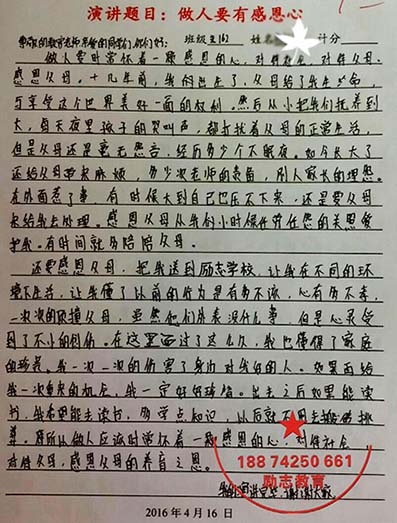 演讲题目：做人要有感恩心
尊敬的教官老师亲爱的同学们你们好： 班级 姓名 计分
做人要时常怀着一颗感恩的心，对待社会，对待父母。
感恩父母，十几年前，我们出生了，父母给了我生命，
与享受这个世界美好一面的权利。然后从小把我们抚养到
大，每天夜里孩子的哭叫声，都打扰着父母的正常生活，
但是父母还是毫无怨言，经历多少个不眠夜。如今长大了
还给父母带来麻烦，多少次老师的责备，别人家长的埋怨。
在外面惹了事，有时候大到自己巴压不下来，还是要父母
来给我去处理。感恩父母从我们小时候怀 任 的关恩爱
护我。有时间就多陪陪父母。
还要感恩父母，把我送到励志学校，让我在不同的环
境下生活，让我懂了以前的行为是有多不该，心有多不孝，
一次次的顶撞父母，虽然他们外表没什么事，但是心灵受
到了不小的创伤。在这里面过了这么久，我也懂得了家庭
的珍贵。我一次一次的伤害了身边对我好的人。如果再给
我一次重来的机会，我一定好好珍惜。出去之后如果能读
书，我希望能去读书，多学点知识，以后就不用去搬 挑
。所以做人应该时常怀着一颗感恩的心，对待社会
对待父母，感恩父母的养育之恩。
我的演讲完毕，谢谢大家
188 74250 661
励志教育
2016年4月16日